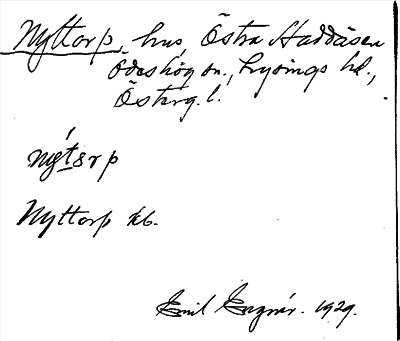 Nyttorp, hus, Östra Haddåsen
Ödeshög sn., Lysings hd.,
Österg. l.
Nyttorp kb.
Emil 1929.